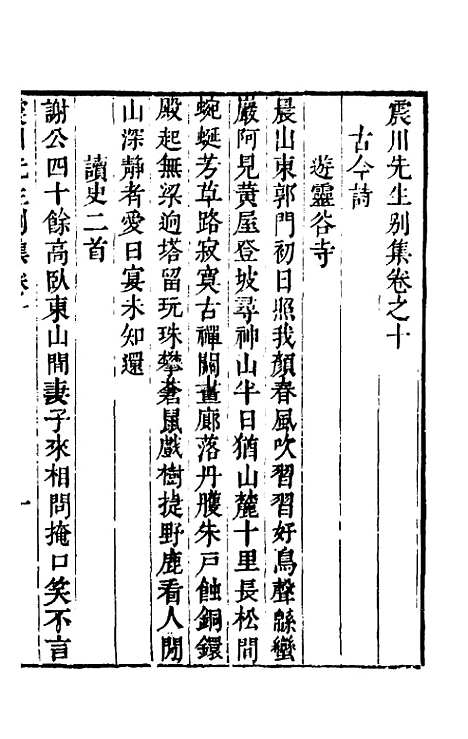 震川先生別集卷之十
古今詩
遊靈谷寺
晨出東郭門初日照我顏春風吹習習好鳥聲緜蠻
巖阿見黃屋登坡尋神山半日猶山麓十里長松間
蜿蜒芳草路寂寞古禪關畫廊落丹雘朱戸蝕銅鐶
殿起無梁逈塔留玩珠攀蒼鼠戲樹捷野鹿看人閒
山深靜者愛日宴未知還
讀史二首
謝公四十餘高臥東山間妻子來相問掩口笑不言